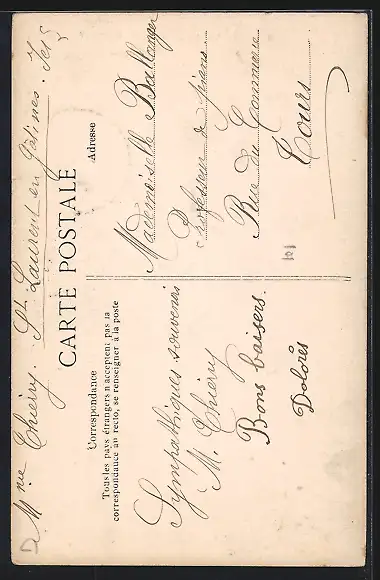 Mme Thiéry. St Laurent en Gâtines.
CARTE POSTALE
Correspondance
Tous les pays étrangers n'acceptent pas la
correspondance au recto, se renseigner à la poste
Adresse
Sympathiques souvenirs
M. Thiéry
Bons baisers.
Dolorès
Mademoiselle Ballanger
Professeur de piano
Rue du Commerce
Tours